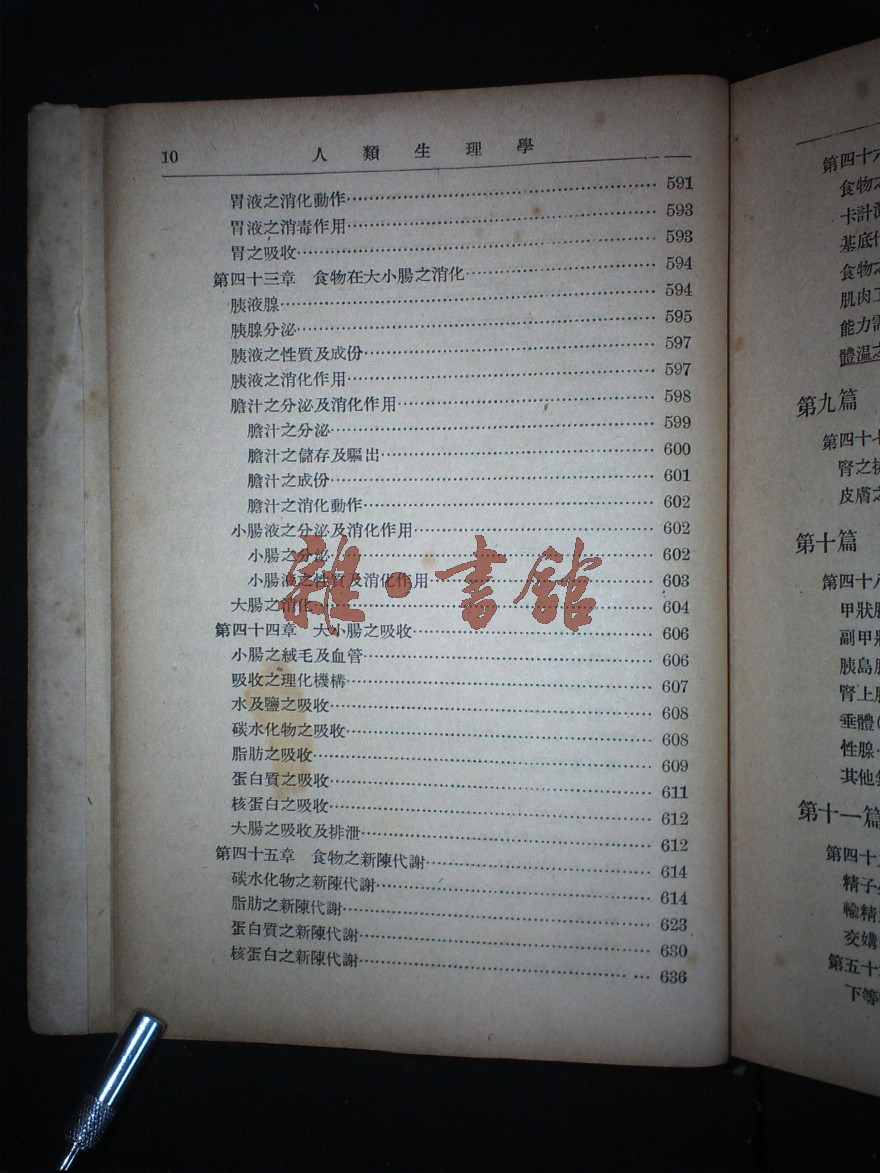 10 人類生理學
胃液之消化動作 591
胃液之消毒作用 593
胃之吸收 593
第四十三章 食物在大小腸之消化 594
胰液腺 594
胰腺分泌 595
胰液之性質及成份 597
胰液之消化作用 597
膽汁之分泌及消化作用 598
膽汁之分泌 599
膽汁之儲存及驅出 600
膽汁之成份 601
膽汁之消化動作 602
小腸液之分泌及消化作用 602
小腸之分泌 602
小腸液之性質及消化作用 603
大腸之消化 604
第四十四章 大小腸之吸收 606
小腸之絨毛及血管 606
吸收之理化機構 607
水及鹽之吸收 608
碳水化物之吸收 608
脂肪之吸收 609
蛋白質之吸收 611
核蛋白之吸收 612
大腸之吸收及排泄 612
第四十五章 食物之新陳代謝 614
碳水化物之新陳代謝 614
脂肪之新陳代謝 623
蛋白質之新陳代謝 630
核蛋白之新陳代謝 636
雜·書館
第四十六
食物之
卡計
基底
食物之
肌肉工
能力需
體溫之
第九篇
第四十七
腎之排
皮膚之
第十篇
第四十八
甲狀腺
副甲狀
胰島腺
腎上腺
垂體
性腺
其他
第十一篇
第四十
精子
輸精
交媾
第五十
下等